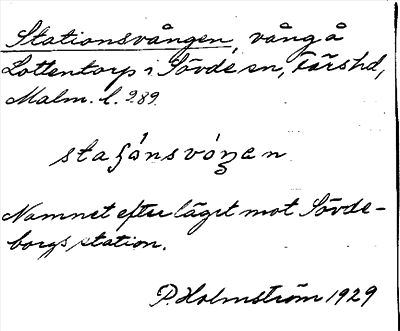 Stationsvången, vång å
Lottentorp i Sövde sn, Färs hd,
Malm. l. 289.
staʃónsvóŋen
Namnet efter läget mot Sövde-
borgs station.
P. Holmström 1929